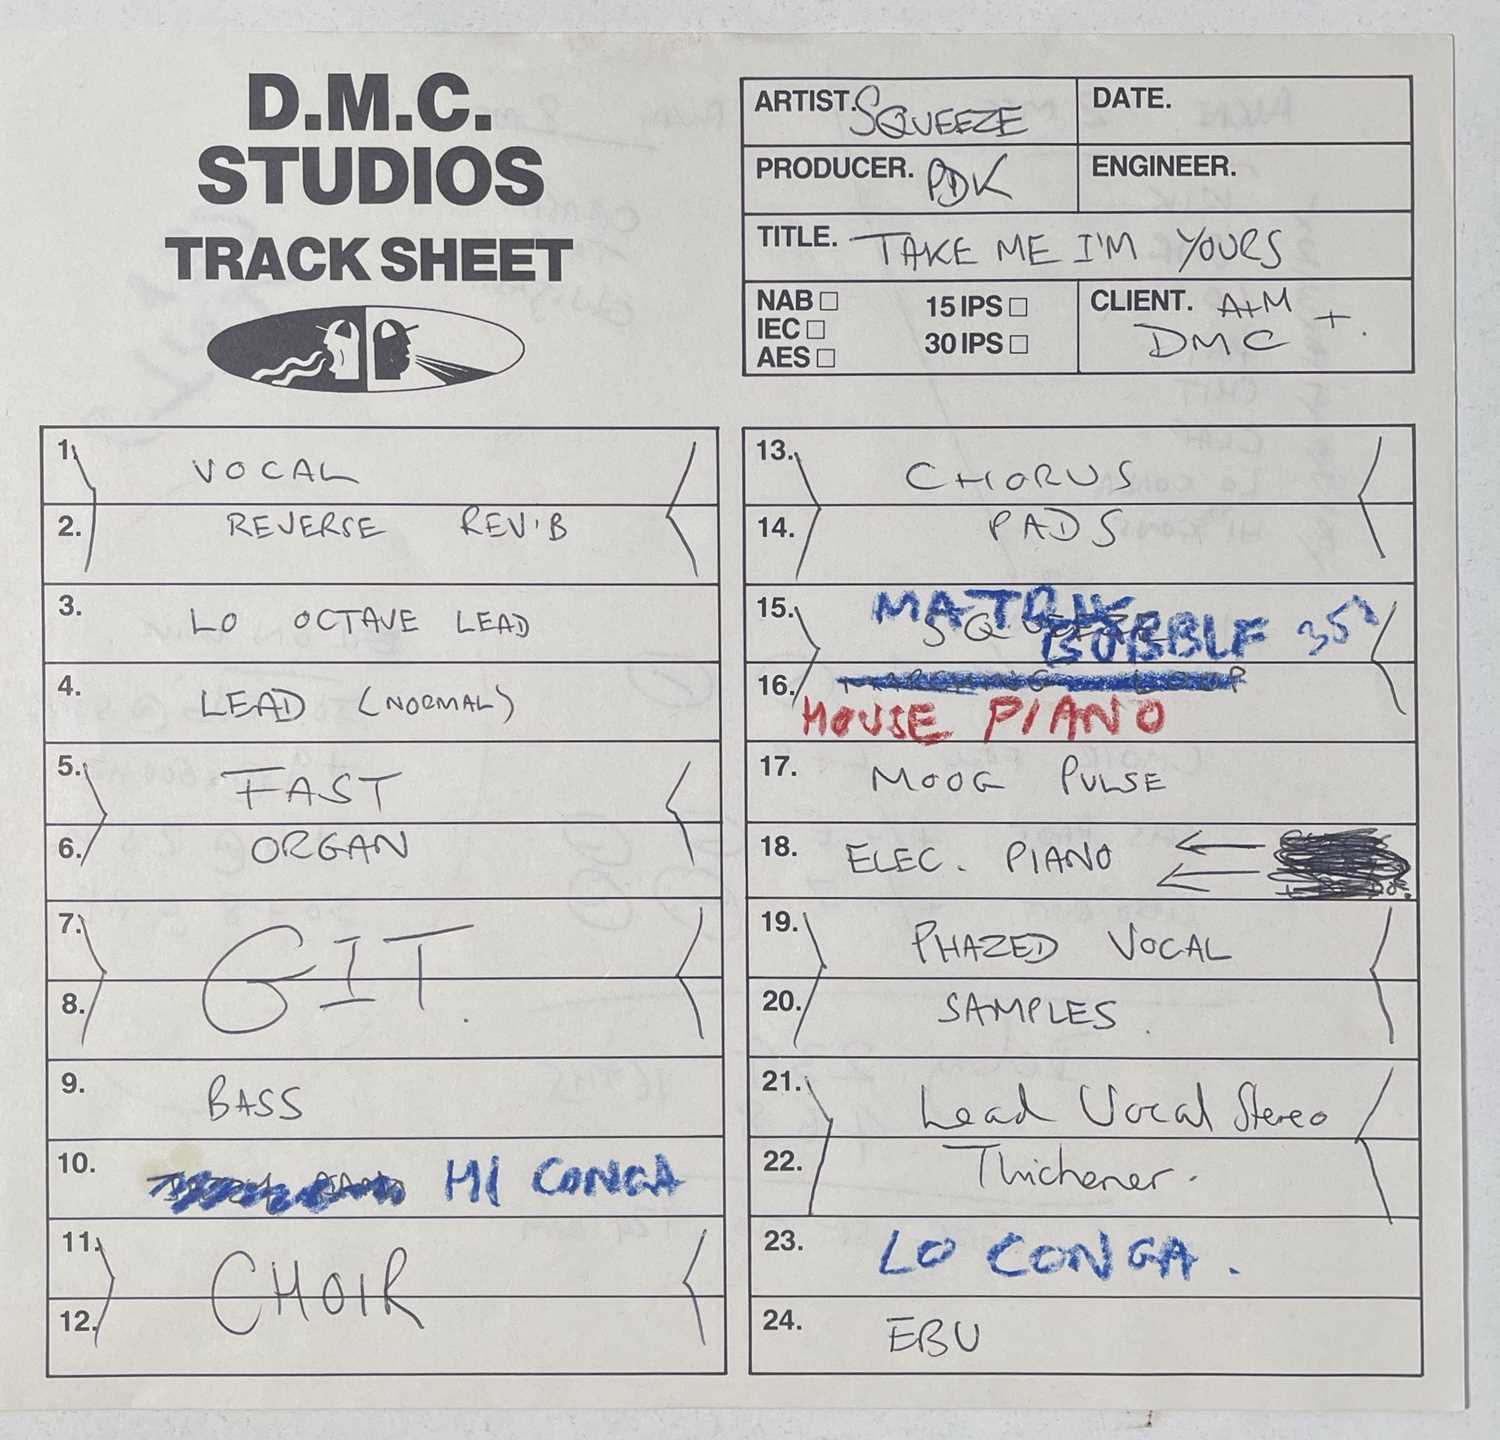 D.M.C.
STUDIOS
TRACK SHEET
ARTIST. SQUEEZE
DATE.
PRODUCER. PDK
ENGINEER.
TITLE. TAKE ME I'M YOURS
NAB
IEC
AES
15 IPS
30 IPS
CLIENT. A+M +
DMC
1. VOCAL
2. REVERSE REV'B
3. LO OCTAVE LEAD
4. LEAD (NORMAL)
5. FAST
6. ORGAN
7.
8. GIT.
9. BASS
10. HI CONGA
11.
12. CHOIR
13. CHORUS
14. PADS
15. MATRIX
BUBBLE 35
16.
HOUSE PIANO
17. MOOG PULSE
18. ELEC. PIANO
19. PHAZED VOCAL
20. SAMPLES.
21. Lead Vocal Stereo
22. Thickener.
23. LO CONGA.
24. EBU